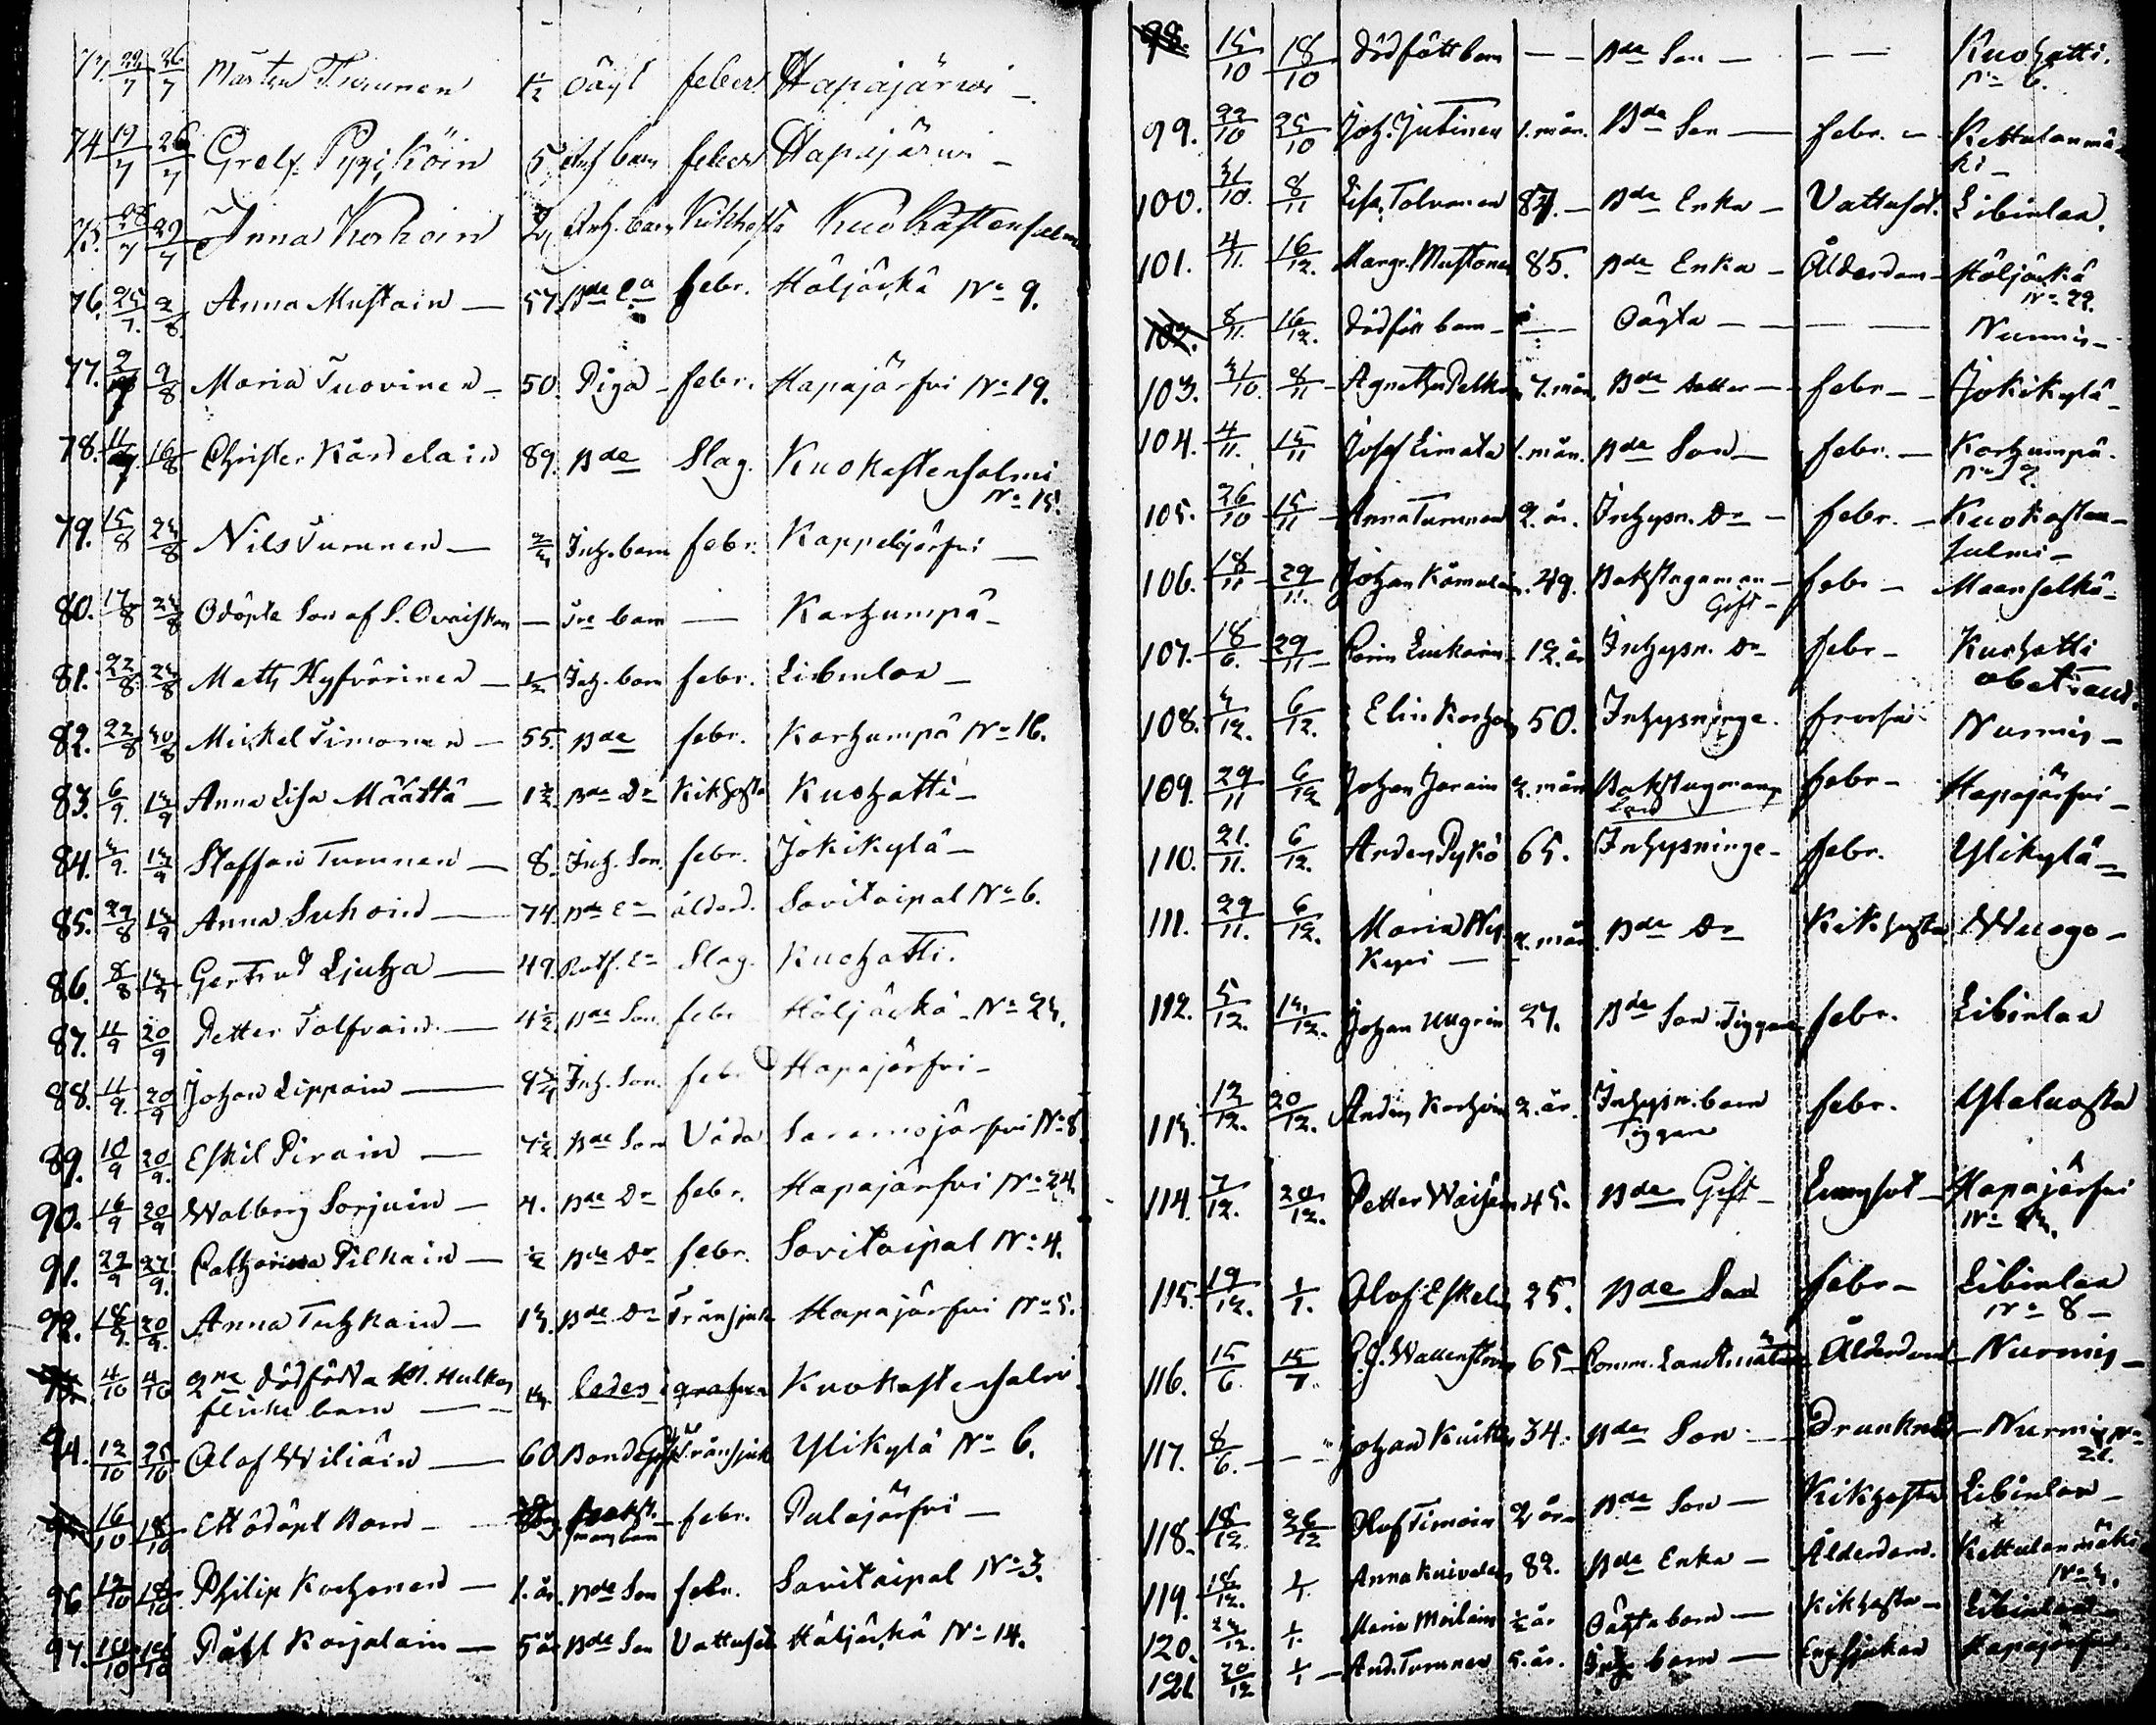 73. 22/7 26/7 Mårten Turunen 1/2 Oägt feber Hapajärwi –
74 19/7 26/7 Grels Pyykköin 5 Inh barn feber Hapajärwi –
75. 28/7 29/7 Anna Korhoin Inh. barn Kikhosta Kuokastensalmi
76. 25/7. 2/8 Anna Mustoin — 57. Bde Ea febr. Höljäckä No 9.
77. 9/8 Maria Tuovinen – 50. Piga – febr. Hapajärfvi No 19.
78. 11 16/8 Christer Kärdelain 89. Bde Slag. Kuokastensalmi
No 15.
79. 15/8 23/8 Nils Turunen — 3/4 Inh. barn febr. Kappelijärfvi —
80. 17/8 23/8 Odöpte Son af S. Ovaiskan — barn — Korhumpä –
81. 22/8 23/8 Matts Hyfvörinen – 1/2 Inh. barn febr. Libinlax –
82. 22/8 30/8 Mickel Timonen – 55. Bde febr. Korhumpä No 16.
83. 6/9. 13/9 Anna Lisa Määttä – 1 1/2 Bde Dr Kikhosta Kuohatti –
84. 3/9. 13/9 Staffan Turunen — 8. Inh. Son. febr. Jokikylä –
85. 29/8 13/9 Anna Suhoin — 74. Bde Ea ålderd. Savitaipal No 6.
86. 8/8 13/9 Gertrud Ljutha — 49. Rotf. Ea Slag. Kuohatti.
87. 11/9 20/9 Petter Tolfvain. — 4 1/2 Bde Son. febr Höljäckä – No 23.
88. 11/9. 20/9 Johan Lippoin — 9 3/4 Inh. Son. febr Hapajärfvi –
89. 10/9 20/9. Eskil Pirain — 7 1/2 Bde Son Våda Saramojärfvi No 8
90. 16/9 20/9 Walborg Sorjuin – 4. Bde Dr febr. Hapajärfvi No 24.
91. 22/9 27/9. Catharina Pilkain — 1/2 Bde Dr febr. Savitaipal No 4.
92. 18/9. 20/9. Anna Tuhkain – 13. Bde Dr Tränsjuk Hapajärfvi No 5.
93. 4/10 4/10 2ne dödfödda M. Hulkos ledes i grafven Kuokastensalmi
flicke barn —
94. 12/10 25/10 Olof Wiliäin — 60 Bonde Gift Tränsjuk Ylikylä No 6.
95. 16/10 18/10 Ett odöpt Barn – Backst. febr. Palojärfvi –
mans barn
96 12/10 18/10 Philip Korhonen — 1. år. Bde Son febr. Savitaipal No 3.
97. 10/10 18/10 Påhl Karjalain — 5 år Bde Son Vattusot Höljäckä No 14.
98. 15/10 18/10 Dödfött barn — – Bde Son – — Kuohatti.
No 6.
99. 22/10 25/10 Joh. Jutinen 1. mån. Bde Son — febr. – Kettulanmä-
ki –
100. 31/10. 8/11 Lisa Tolvanen 87. – Bde Enka – Vattusot. Libinlax.
101. 4/11. 16/12. Margr. Mustonen 85. Bde Enka – Ålderdom – Höljäckä
No 29.
102. 8/11. 16/12. Dödfött barn – — Oägta – — Nurmis –
103. 31/10. 8/11 – Agnetha Pelko 7. mån. Bde dotter – febr – Jokikylä –
104. 4/11. 15/11 Josef Limata 1. mån. Bde Son – febr. – Korhumpä.
No 12.
105. 26/10 15/11 – Anna Turunen 2. år. Inhysn. Dr – febr. – Kuokasten-
salmi –
106. 18/11 29/11. Johan Kämäläin. 49. Bakstugaman – febr – Maanselkä.
Gift –
107. 18/6. 29/11 – Carin Luckarin 12. år Inhysn. Dr febr – Kuohatti
obetraud.
108. 3/12. 6/12. Elin Korhoin 50. Inhysninge. frossa Nurmis –
109. 29/11 6/12 Johan Jorain 2. mån Bakstugmans febr – Hapajärfvi –
Son
110. 21./11. 6/12. Anders Pykö 65. Inhysninge – febr. Ylikylä –
111. 29/11. 6/12. Maria 2. mån. Bde Dr Kikhosta Wuogo –
112. 5/12. 13/12. Johan Ungrin 27. Bde Son Tiggare febr. Libinlax
113. 12/12. 20/12. Anders Korhoin 2. år. Inhysn. barn febr. Ylaluosta
Tiggare
114. 7/12. 20/12. Petter Waisan 45. Bde Gift – Lungsot – Hapajärfvi
No 23.
115. 19/12. 1/1. Olof Eskelin 25. Bde Son febr – Libinlax
No 8 –
116. 15/6. 15/7. G. J. Wallenström 65 – Comm. Landtmätare Ålderdom – Nurmis –
117. 8/6. – – Johan Kuitti 34. Bde Son – Drunknad – Nurmis No
21.
118. 18/12. 26/12 Olof Timoin 2 år – Bde Son — Kikhosta Libinlax –
119. 18/12. 1/1. Anna Kuivalain 82. Bde Enka – Ålderdom. Kettulanmäki
No 3.
120. 23/12. 1/1. Maria Moilain 1/2 år Oägta barn — Kikhosta – Libinlax –
121 20/12 1/1 – And. Turunen 5. år. Inh barn — Hapajärfvi